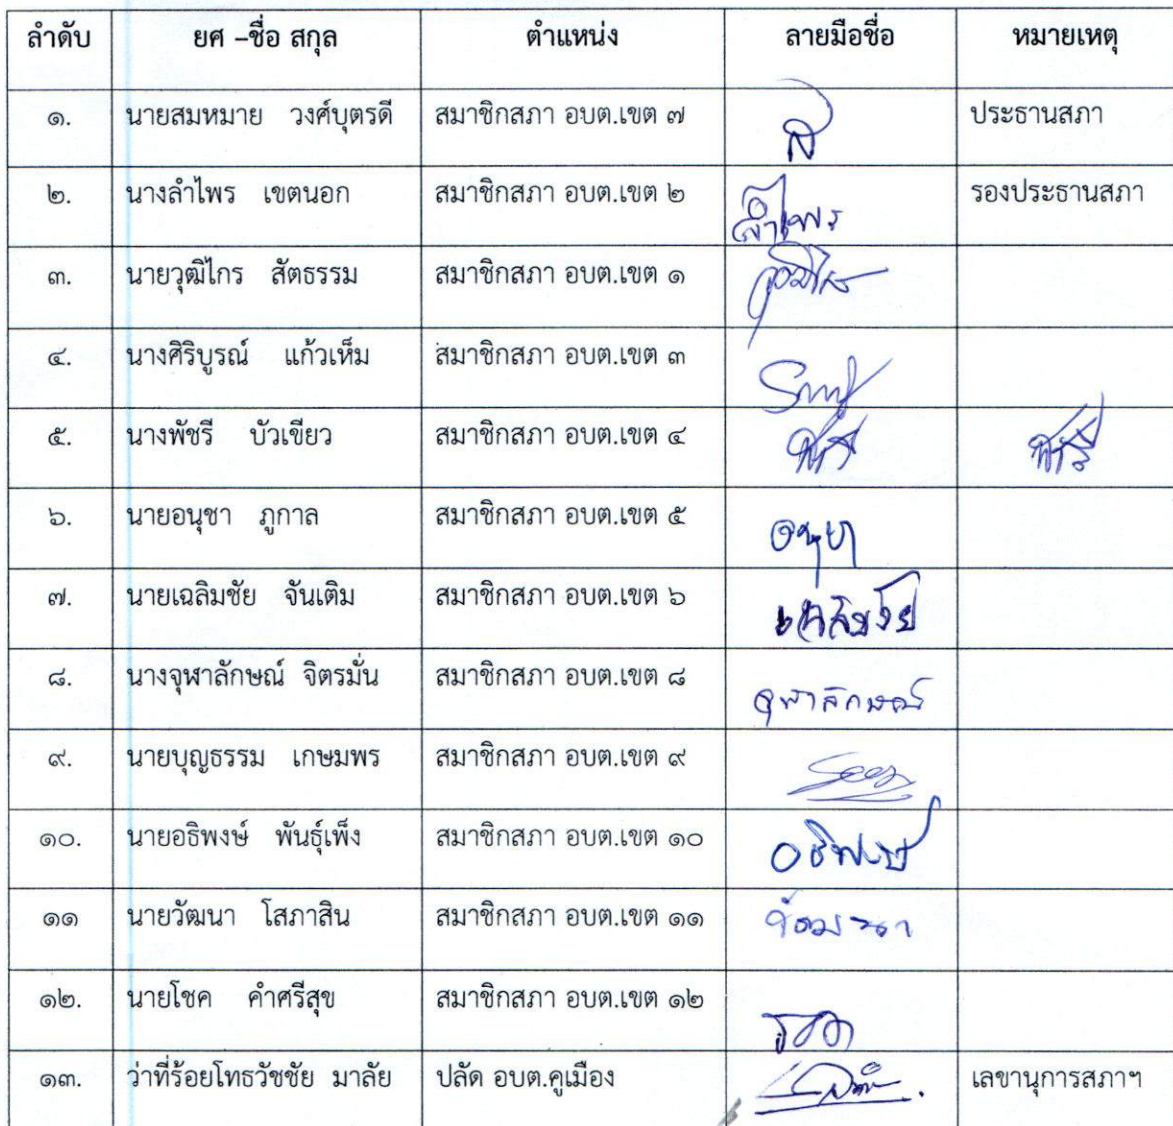 ลำดับ ยศ –ชื่อ สกุล ตำแหน่ง ลายมือชื่อ หมายเหตุ
๑. นายสมหมาย วงศ์บุตรดี สมาชิกสภา อบต.เขต ๗ ส ประธานสภา
๒. นางลำไพร เขตนอก สมาชิกสภา อบต.เขต ๒ ลำไพร รองประธานสภา
๓. นายวุฒิไกร สัตธรรม สมาชิกสภา อบต.เขต ๑
๔. นางศิริบูรณ์ แก้วเห็ม สมาชิกสภา อบต.เขต ๓
๕. นางพัชรี บัวเขียว สมาชิกสภา อบต.เขต ๔
๖. นายอนุชา ภูกาล สมาชิกสภา อบต.เขต ๕ อนุชา
๗. นายเฉลิมชัย จันเติม สมาชิกสภา อบต.เขต ๖ เฉลิมชัย
๘. นางจุฬาลักษณ์ จิตรมั่น สมาชิกสภา อบต.เขต ๘ จุฬาลักษณ์
๙. นายบุญธรรม เกษมพร สมาชิกสภา อบต.เขต ๙
๑๐. นายอธิพงษ์ พันธุ์เพ็ง สมาชิกสภา อบต.เขต ๑๐ อธิพงษ์
๑๑ นายวัฒนา โสภาสิน สมาชิกสภา อบต.เขต ๑๑ วัฒนา
๑๒. นายโชค คำศรีสุข สมาชิกสภา อบต.เขต ๑๒
๑๓. ว่าที่ร้อยโทธวัชชัย มาลัย ปลัด อบต.คูเมือง เลขานุการสภาฯ